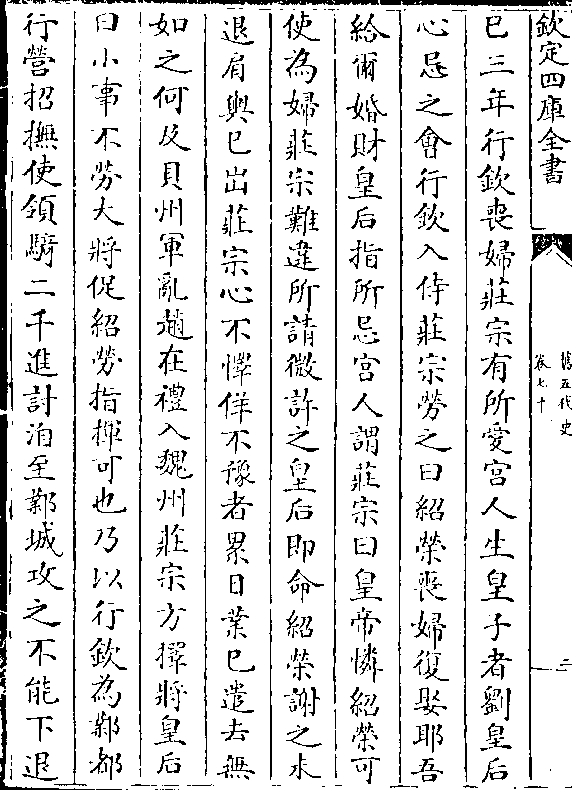 欽定四庫全書
舊五代史
卷七十
二
巳三年行欽喪婦莊宗有所愛宮人生皇子者劉皇后
心忌之會行欽入侍莊宗勞之曰紹榮喪婦復娶耶吾
給爾婚財皇后指所忌宮人謂莊宗曰皇帝憐紹榮可
使為婦莊宗難違所請微許之皇后即命紹榮謝之未
退肩輿已出莊宗心不懌佯不豫者累日業已遣去無
如之何及貝州軍亂趙在禮入魏州莊宗方擇將皇后
曰小事不勞大將促紹勞指揮可也乃以行欽為鄴都
行營招撫使領騎二千進討洎至鄴城攻之不能下退